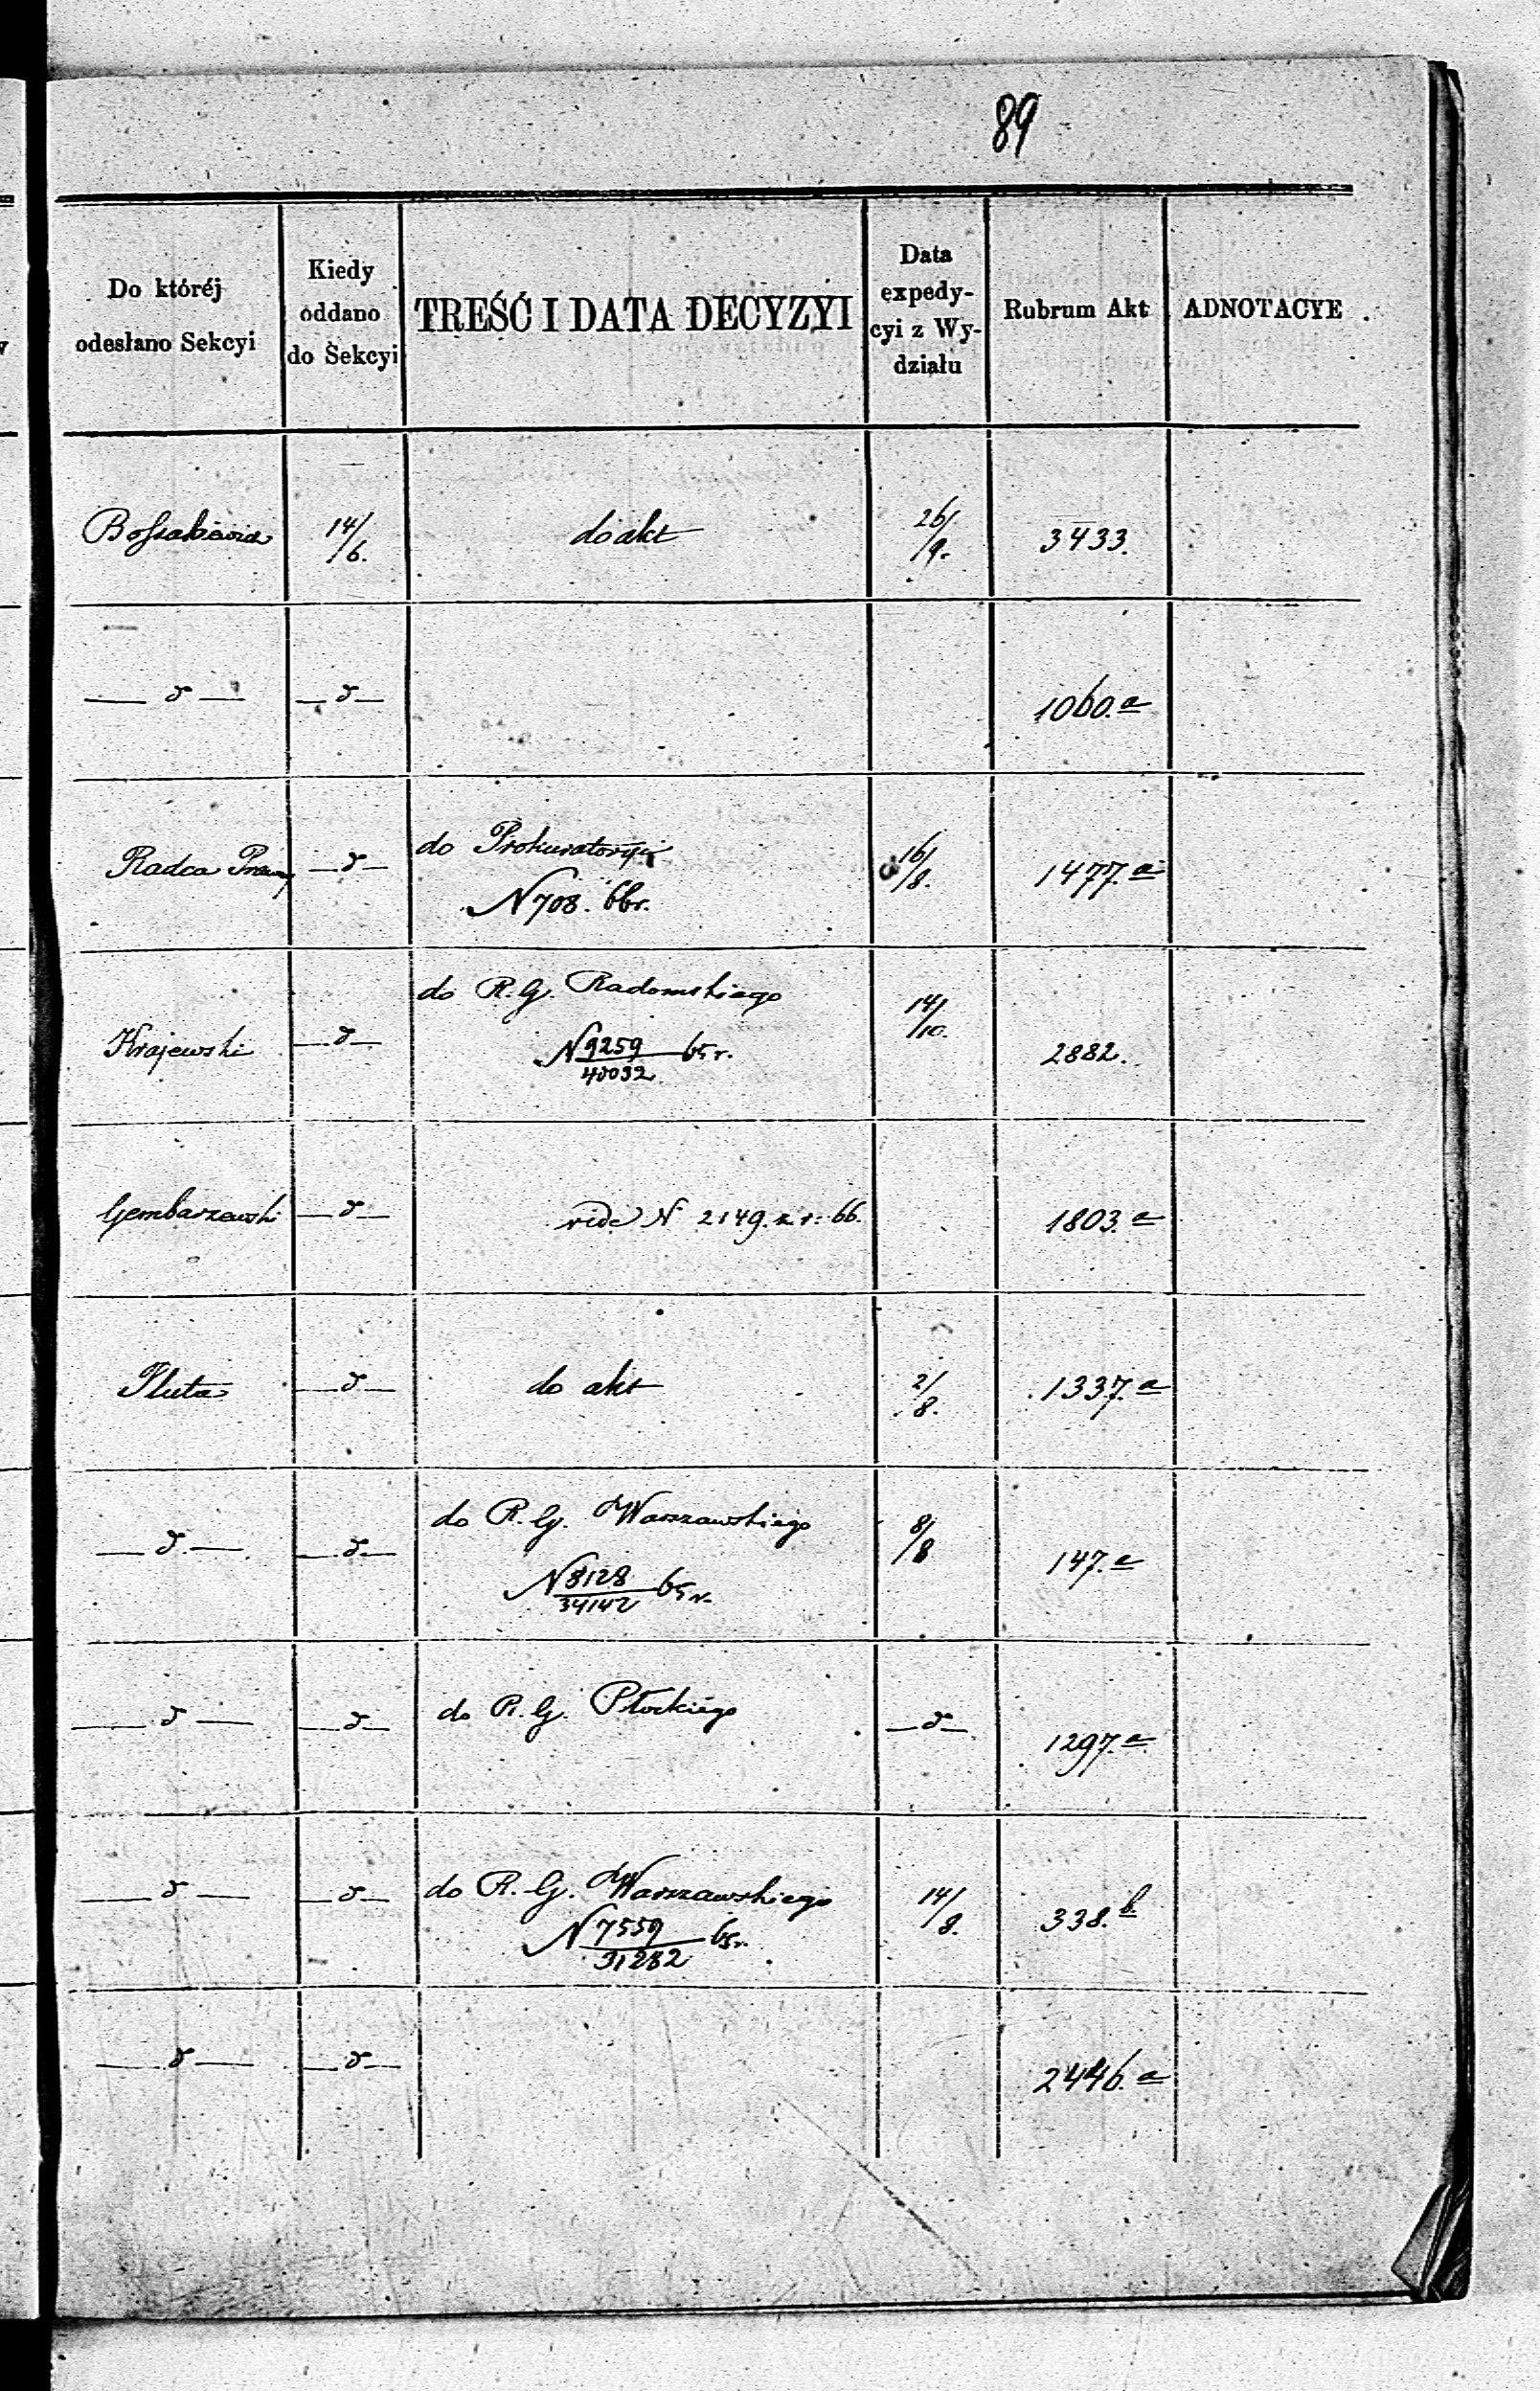 89
Do któréj
odesłano Sekcyi
Kiedy
oddano
do Sekcyi
TREŚĆ I DATA DECYZYI
Data
expedy-
cyi z Wy-
działu
Rubrum Akt
ADNOTACYE
14/6. do akt 26/9. 3433.
— d — — d — 1060.a
Radca Prawny — d — do Prokuratoryi 16/8. 1477.a
N 708. 66 r.
Krajewski — d — do R. G. Radomskiego 14/10. 2882.
N 9259/40032 65 r.
Gembarzewski — d — vide N 2149. z r: 66. 1803.a
Pluta — d — do akt 2/8. 1337.a
— d — — d — do R. G. Warszawskiego 8/8 147.a
N 8128/34142 65 r.
— d — — d — do R. G. Płockiego — d — 1297.a
— d — — d — do R. G. Warszawskiego 14/8. 338.b.
N 7559/31282 65 r.
— d — — d — 2446.a